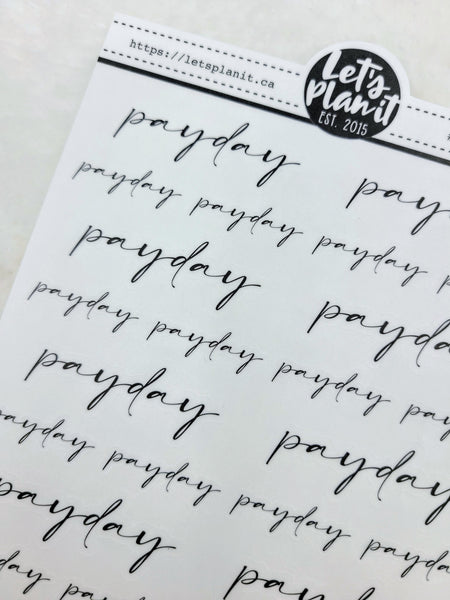 https://letsplanit.ca
Let's
plan it
EST. 2015
payday pay
payday payday payday p
payday payda
payday payday payday pay
payday payday
payday payday payday payday
payday pa
payday payday